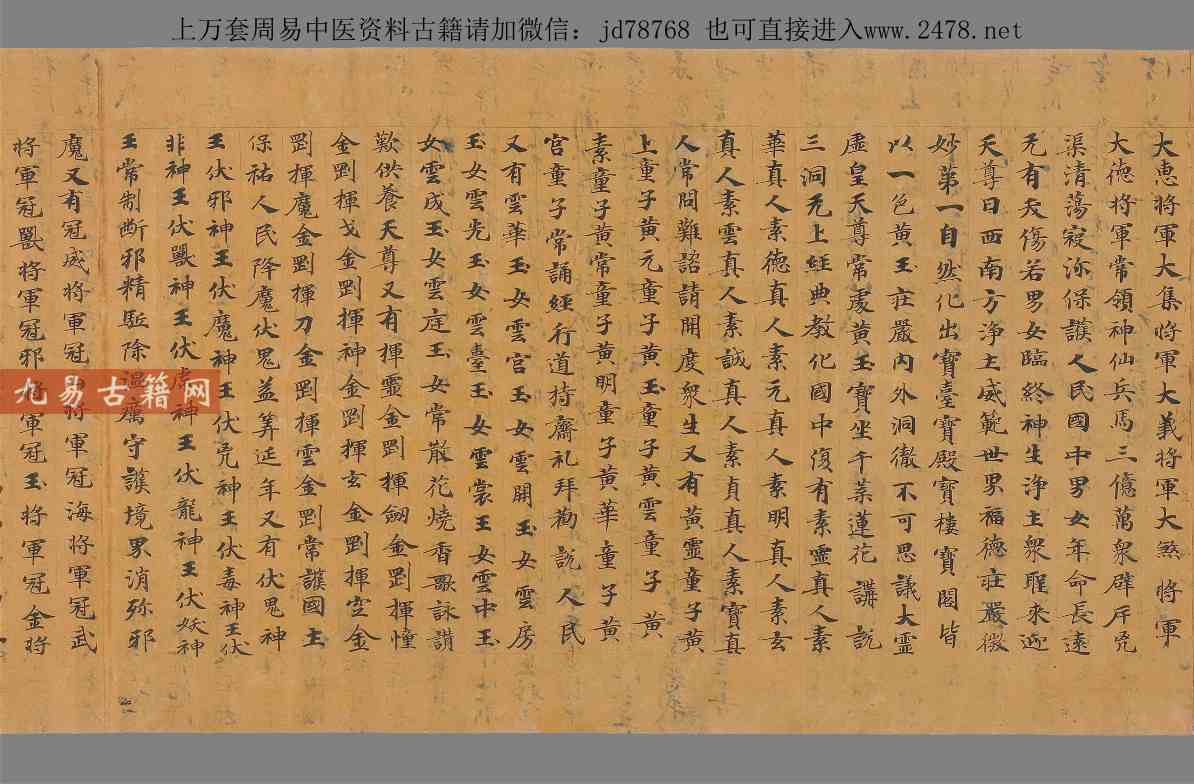 上万套周易中医资料古籍请加微信：jd78768 也可直接进入www.2478.net
大惠将軍大集将軍大義将軍大煞将軍
大德将軍常領神仙兵馬三億萬衆辟斥㐫
渠清蕩寇弥保護人民國中男女年命長遠
无有夭傷若男女臨終神生浄土衆聖来迎
天尊曰西南方浄土威範世界福德莊嚴微
妙第一自然化出寶臺寶殿寶樓寶閣皆
以一色黄玉莊嚴内外洞徹不可思議大靈
虚皇天尊常處黄玉寶坐千葉蓮花講說
三洞无上経典教化國中復有素靈真人素
華真人素德真人素元真人素明真人素玄
真人素雲真人素誠真人素貞真人素寶真
人常問難諮請開度衆生又有黄靈童子黄
上童子黄元童子黄玉童子黄雲童子黄
素童子黄常童子黄明童子黄華童子黄
官童子常誦經行道持齋礼拜勸說人民
又有雲華玉女雲官玉女雲開玉女雲房
玉女雲光玉女雲臺玉女雲裳玉女雲中玉
女雲成玉女雲庭玉女常散花燒香歌詠讃
歎供養天尊又有揮靈金剛揮劒金剛揮幢
金剛揮戈金剛揮神金剛揮玄金剛揮空金
剛揮魔金剛揮刀金剛揮雲金剛常護國土
保祐人民降魔伏鬼益筭延年又有伏鬼神
王伏邪神王伏魔神王伏㐫神王伏毒神王伏
非神王伏獸神王伏虎神王伏龍神王伏妖神
王常制断邪精駈除温癘守護境界消弥邪
魔又有冠威将軍冠将軍冠海将軍冠武
将軍冠獸将軍冠邪将軍冠玉将軍冠金将
九易古籍网